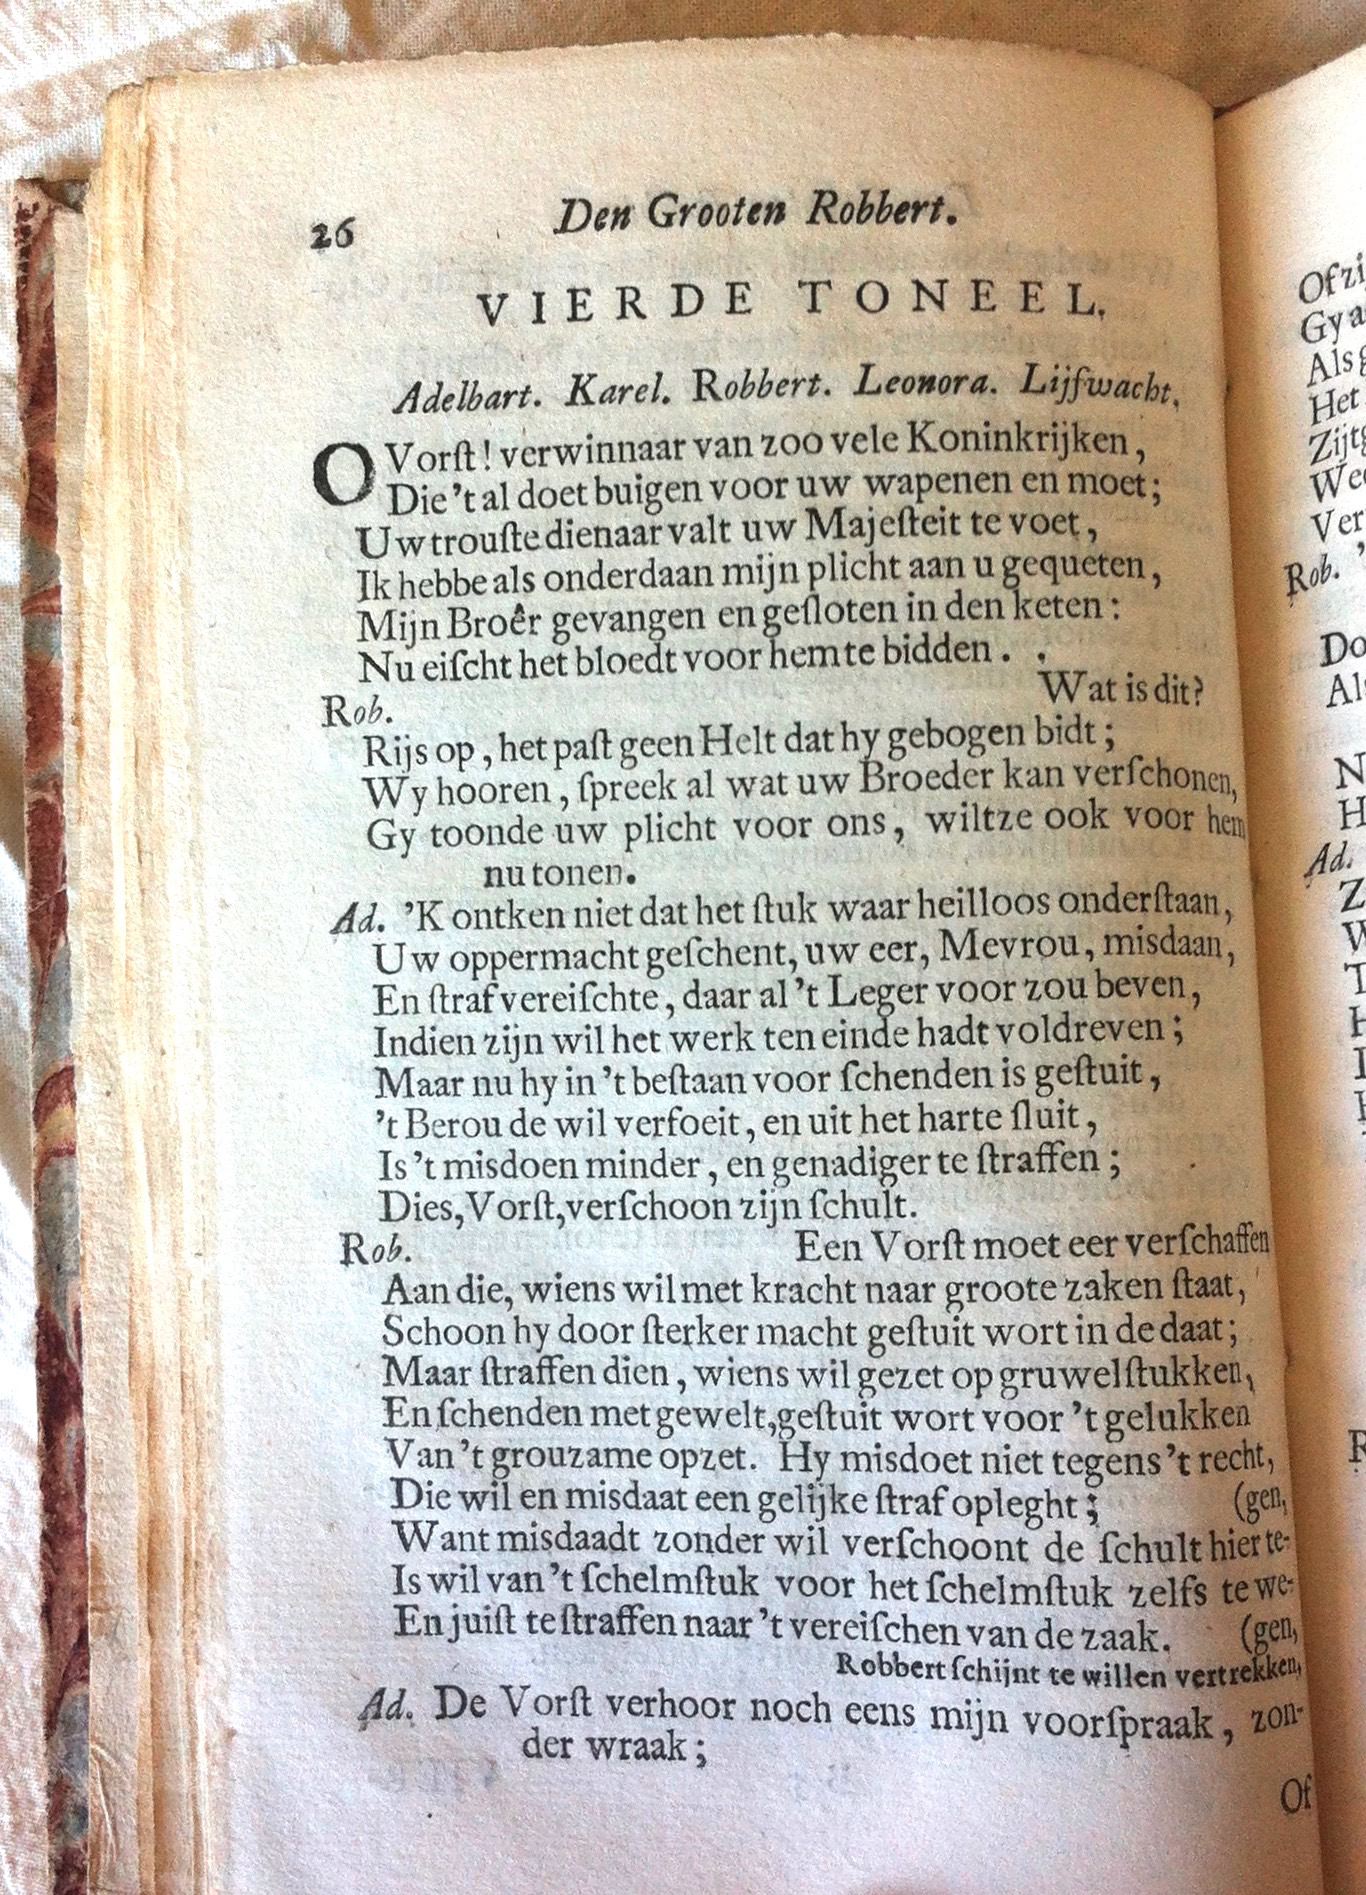 26
Den Grooten Robbert.
VIERDE TONEEL.
Adelbart. Karel. Robbert. Leonora. Lijfwacht.
O Vorſt! verwinnaar van zoo vele Koninkrijken,
Die 't al doet buigen voor uw wapenen en moet;
Uw trouſte dienaar valt uw Majeſteit te voet,
Ik hebbe als onderdaan mijn plicht aan u gequeten,
Mijn Broêr gevangen en geſloten in den keten:
Nu eiſcht het bloedt voor hem te bidden. .
Rob. Wat is dit?
Rijs op, het paſt geen Helt dat hy gebogen bidt;
Wy hooren, ſpreek al wat uw Broeder kan verſchonen,
Gy toonde uw plicht voor ons, wiltze ook voor hem
nu tonen.
Ad. 'K ontken niet dat het ſtuk waar heilloos onderſtaan,
Uw oppermacht geſchent, uw eer, Mevrou, misdaan,
En ſtraf vereiſchte, daar al 't Leger voor zou beven,
Indien zijn wil het werk ten einde hadt voldreven;
Maar nu hy in 't beſtaan voor ſchenden is geſtuit,
't Berou de wil verfoeit, en uit het harte ſluit,
Is 't misdoen minder, en genadiger te ſtraffen;
Dies, Vorſt, verſchoon zijn ſchult.
Rob. Een Vorſt moet eer verſchaffen
Aan die, wiens wil met kracht naar groote zaken ſtaat,
Schoon hy door ſterker macht geſtuit wort in de daat;
Maar ſtraffen dien, wiens wil gezet op gruwelſtukken,
En ſchenden met gewelt, geſtuit wort voor 't gelukken
Van 't grouzame opzet. Hy misdoet niet tegens 't recht,
Die wil en misdaat een gelijke ſtraf opleght; (gen,
Want misdaadt zonder wil verſchoont de ſchult hier te-
Is wil van 't ſchelmſtuk voor het ſchelmſtuk zelfs te we-
En juiſt te ſtraffen naar 't vereiſchen van de zaak. (gen,
Robbert ſchijnt te willen vertrekken,
Ad. De Vorſt verhoor noch eens mijn voorſpraak, zon-
der wraak;
Of
Of zi
Gy a
Als g
Het
Zijtg
Wee
Ver
Rob. '
Do
Al
N
H
Ad.
Z
W
T
H